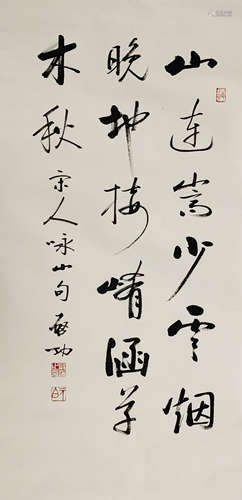 山连嵩少云烟
晚地接崤函草
木秋 宋人咏山句 启功